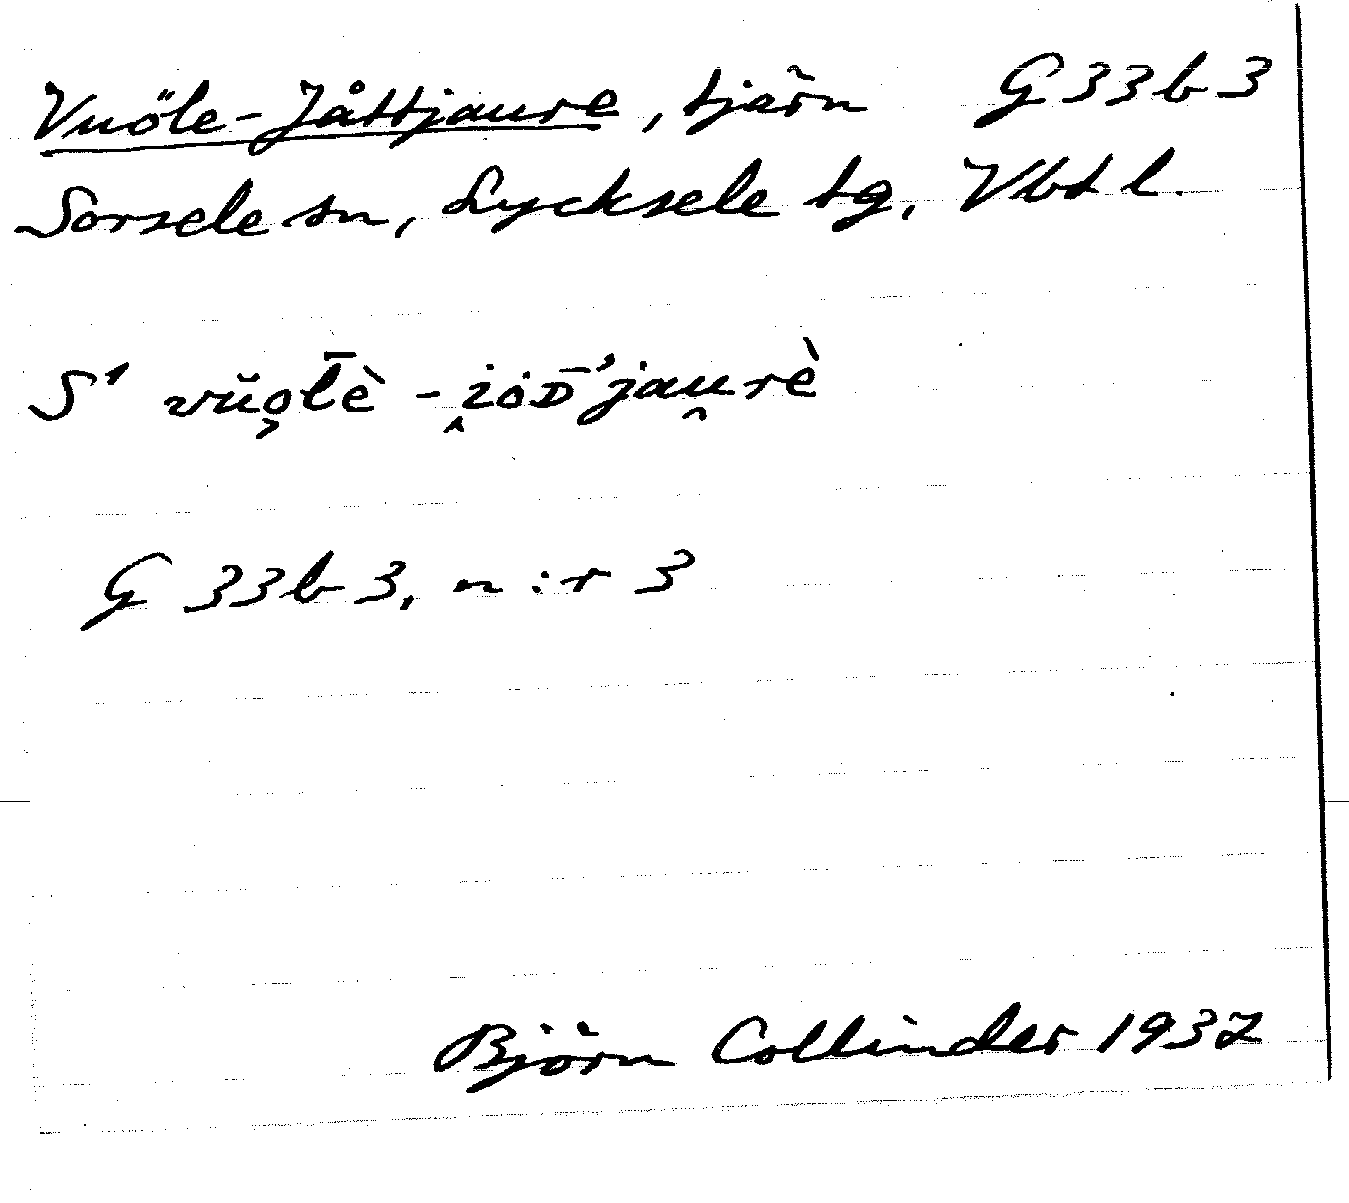 Vuöle-Jåttjaure, tjärn G 33 b 3
Sorsele sn, Lycksele tg, Vbt l.
S'
G 33 b 3, n:r 3
Björn Collinder 1937